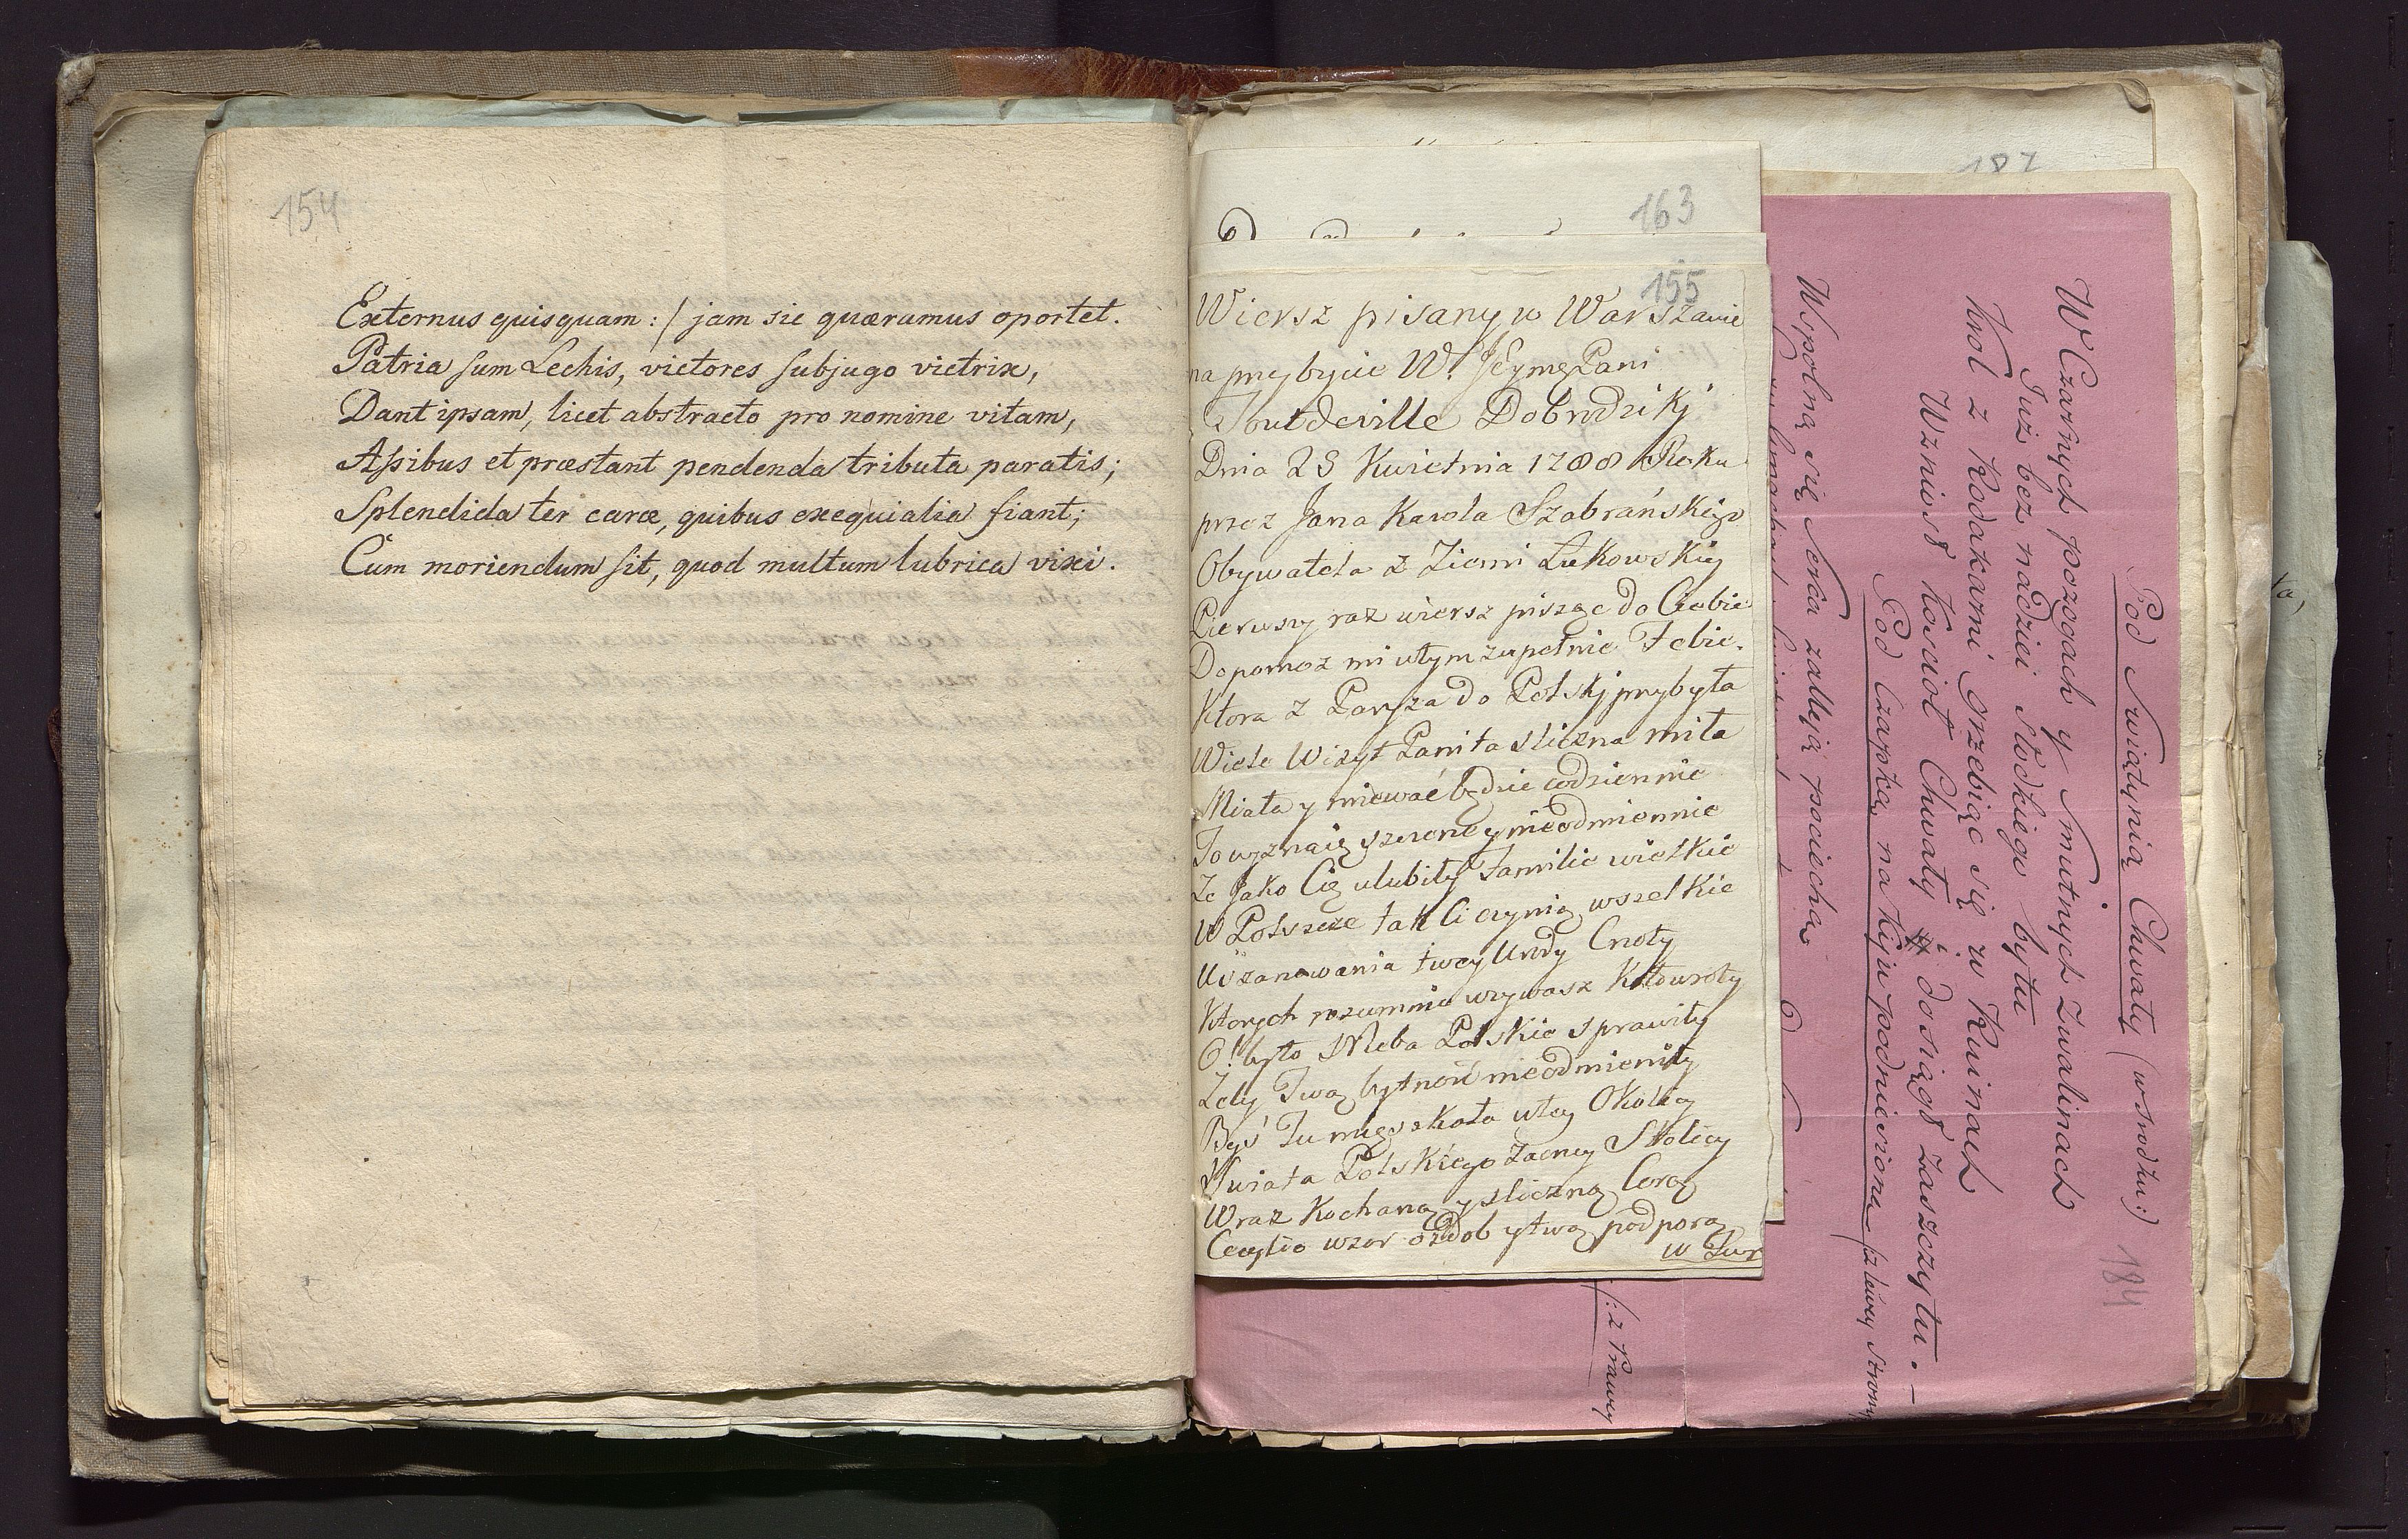 154
Externus quisquam :/ jam sic quæramus oportet.
Patria sum Lechis, victores subjugo victrix,
Dant ipsam, licet abstracto pro nomine vitam,
Assibus et præstant pendenda tributa paratis;
Splendida ter caræ, quibus exequialia fiant;
Cum moriendum sit, quod multum lubrica vixi.
163
155
Wiersz pisany w Warszawie
na przybycie W. JEymę Pani
Toutdeville Dobrodziki
Dnia 25 Kwietnia 1788 Roku
przez Jana Karola Szabrańskiego
Obywatela z Ziemi Łukowskiey
Pierwszy raz wiersz pisząc do Ciebie
Dopomoz mi wtym zupełnie Febie.
Ktora z Paryza do Polski przybyła
Wiele Wizyt Pani ta sliczna miła
Miała y miewać będzie codziennie
To wyznaię szczerze y nieodmiennie
Ze Jako Cię ulubiły Familie wielkie
W Polszcze tak Ci czynią wszelkie
Uszanowania twey Urody Cnoty
Ktorych rozumnie uzywasz
O! było Nieba Polskie sprawiły
Zeby Twą bytność nieodmieniły
Byś Tu mięszkała wtey Okolicy
Swiata Polskiego zacney Stolicy
Wraz Kochaną y sliczną Corą
Cecylio wzor ozdob y twą podporą
187
184
Pod Swiątynią Chwały (w srodku:)
W Czarnych pozogach y smutnych zwalinach
Już bez nadziei słodkiego bytu
Krol z Rodakami grzebiąc się w Ruinach
Wzniosł Kościoł Chwały i dosiągł zaszczytu. –
Pod Czapką na Kiju podniesioną /: z lewey strony
Wspolną się serca zalleją pociechą
/: z Prawey